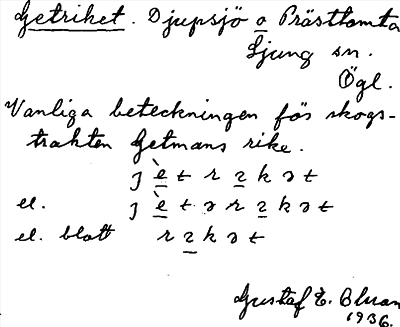 Getriket. Djupsjö o Prästtomta
Ljung sn.
Ögl.
Vanliga beteckningen för skogs-
trakten Getmans rike.
j è t r ɪ k ə t
el. j è t ə r ɪ k ə t
el. blott r ɪ k ə t
Gustaf E. Bluan
1936.